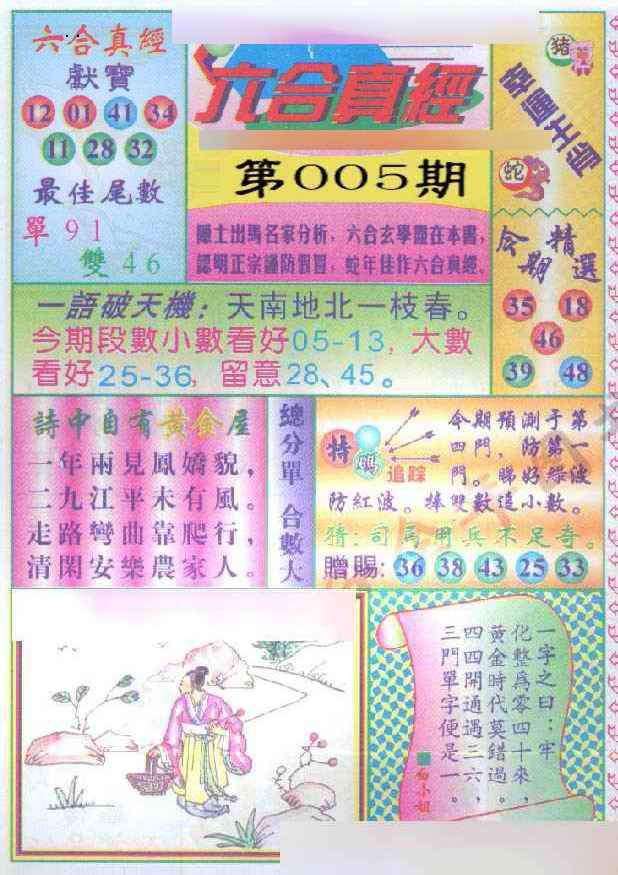 六合真經
獻寶
12 01 41 34
11 28 32
最佳尾數
單 91
雙 46
六合真經
第005期
隱士出馬名家分析，六合玄學盡在本書，
認明正宗謹防假冒，蛇年佳作六合真經。
豬
蛇
今期精選
35 18
46
39 48
一語破天機：天南地北一枝春。
今期段數小數看好05-13，大數
看好25-36，留意28、45。
詩中自有黃金屋
一年兩見鳳嬌貌，
二九江平未有風。
走路彎曲靠爬行，
清閑安樂農家人。
總分單 合數大
特碼
追踪
今期預測于第
四門，防第一
門。睇好綠波
防紅波。捧雙數追小數。
猜：司馬用兵不足奇。
贈賜：36 38 43 25 33
一字之曰：牢
化整爲零四十來，
黃金時代莫錯過。
四四開通遇三六，
三門單字便是一。
白小姐